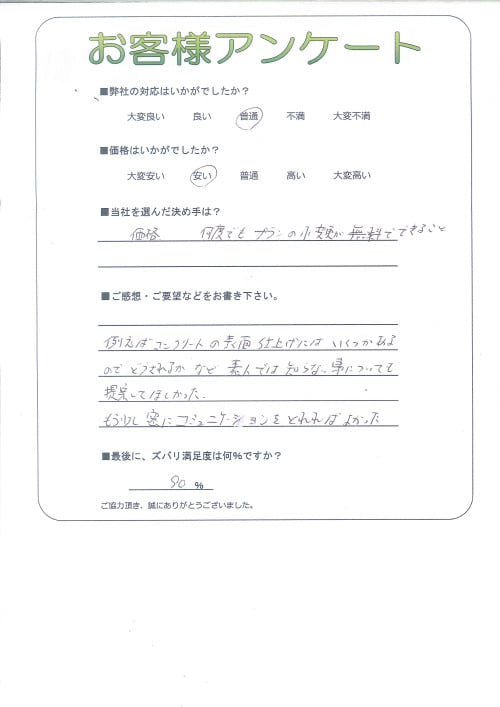 お客様アンケート
■弊社の対応はいかがでしたか？
大変良い 良い 普通 不満 大変不満
■価格はいかがでしたか？
大変安い 安い 普通 高い 大変高い
■当社を選んだ決め手は？
価格 何度でも プランの 変更が 無料でできること
■ご感想・ご要望などをお書き下さい。
例えばコンクリートの表面仕上げには いくつかある
ので どうされるか など 素人では 知らない事についても
提案してほしかった.
もう少し 密にコミュニケーションをとれればよかった
■最後に、ズバリ満足度は何%ですか？
90 %
ご協力頂き、誠にありがとうございました。